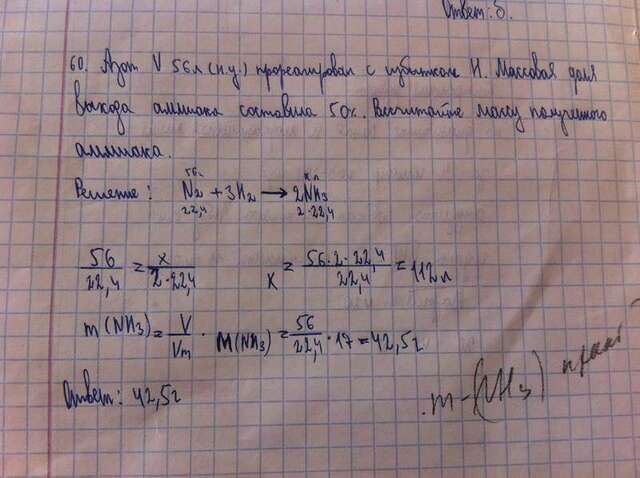 Ответ: 8.
60. Азот V 56л (н.у.) прореагировал с избытком H. Массовая доля
выхода аммиака составила 50%. Рассчитайте массу полученного
аммиака.
56л x л
Решение: N2 + 3H2 → 2NH3
22,4 2·22,4
56/22,4 = x/2·22,4 x = 56·2·22,4/22,4 = 112л
m(NH3) = V/Vm · M(NH3) = 56/22,4 · 17 = 42,5г
Ответ: 42,5г
m-(NH3) практ-